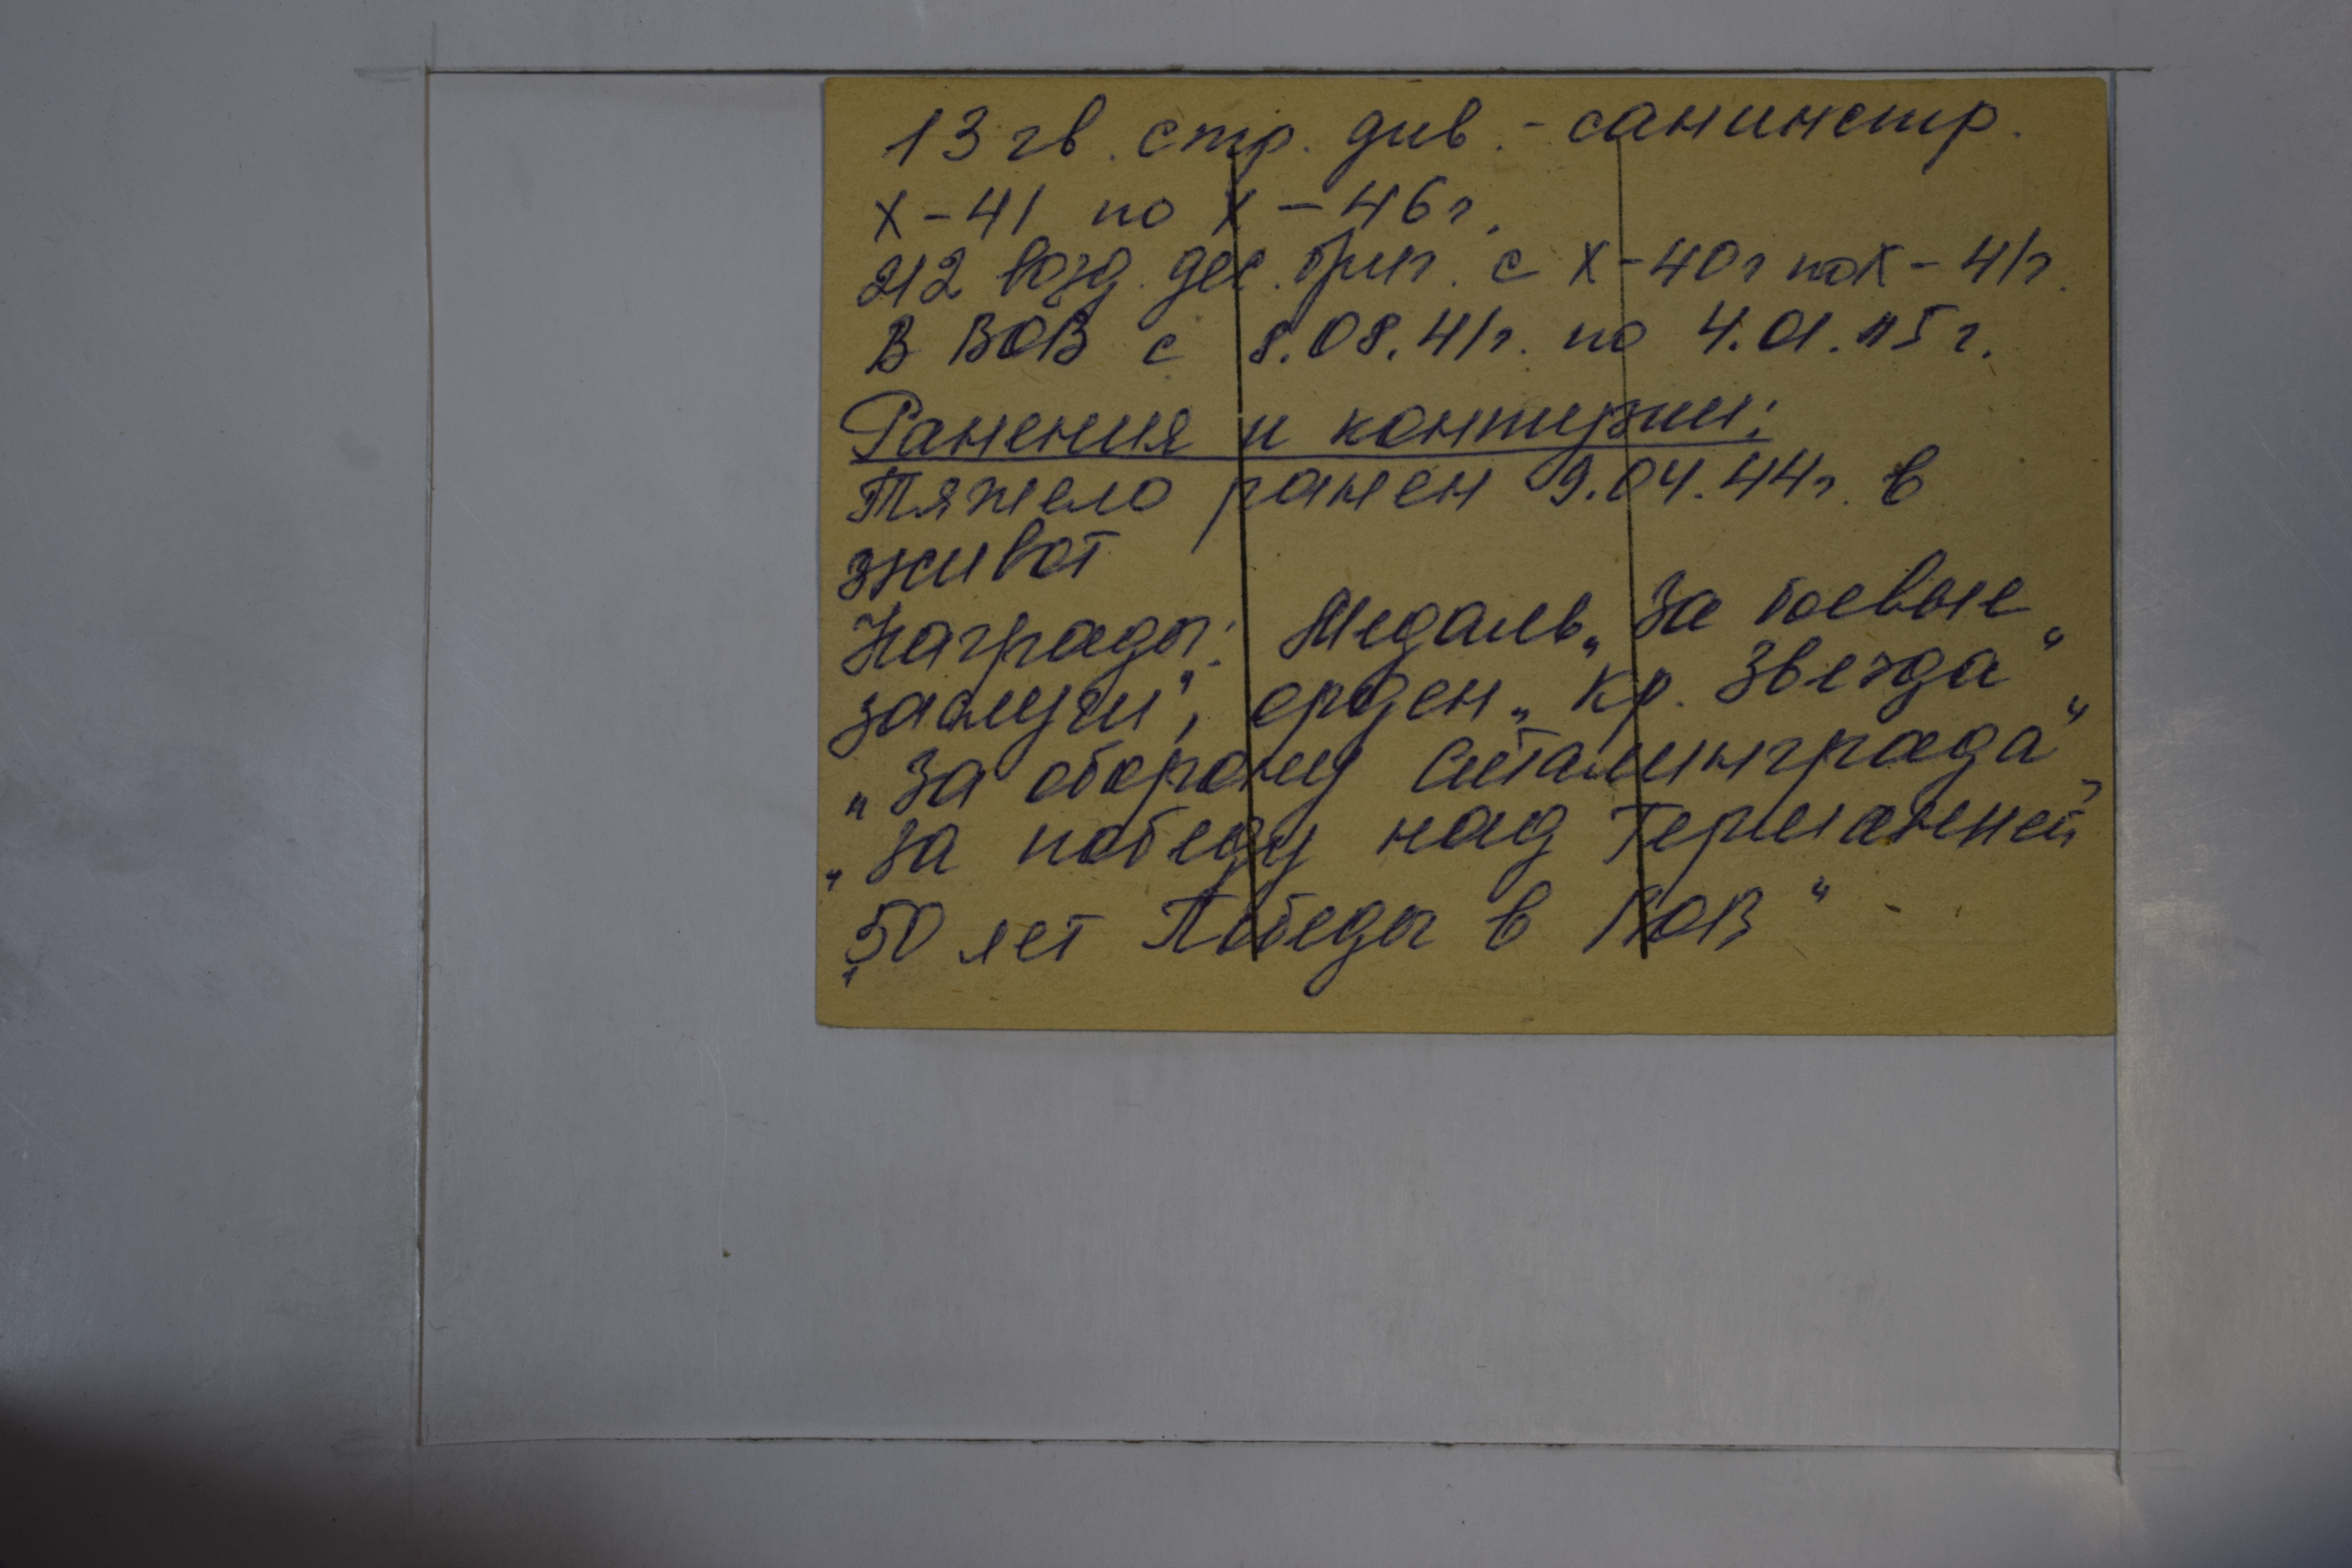 13 гв. стр. див. - санинстр.
X-41 по X-46г.
212 возд. дес. бриг. с X-40г по X-41г.
В ВОВ с 8.08.41г. по 4.01.45г.
Ранения и контузии:
Тяжело ранен 9.04.44г. в
живот
Награды: Медаль „За боевые
заслуги", орден „Кр. Звезда"
„За оборону Сталинграда",
„За победу над Германией"
„50 лет Победы в ВОВ"